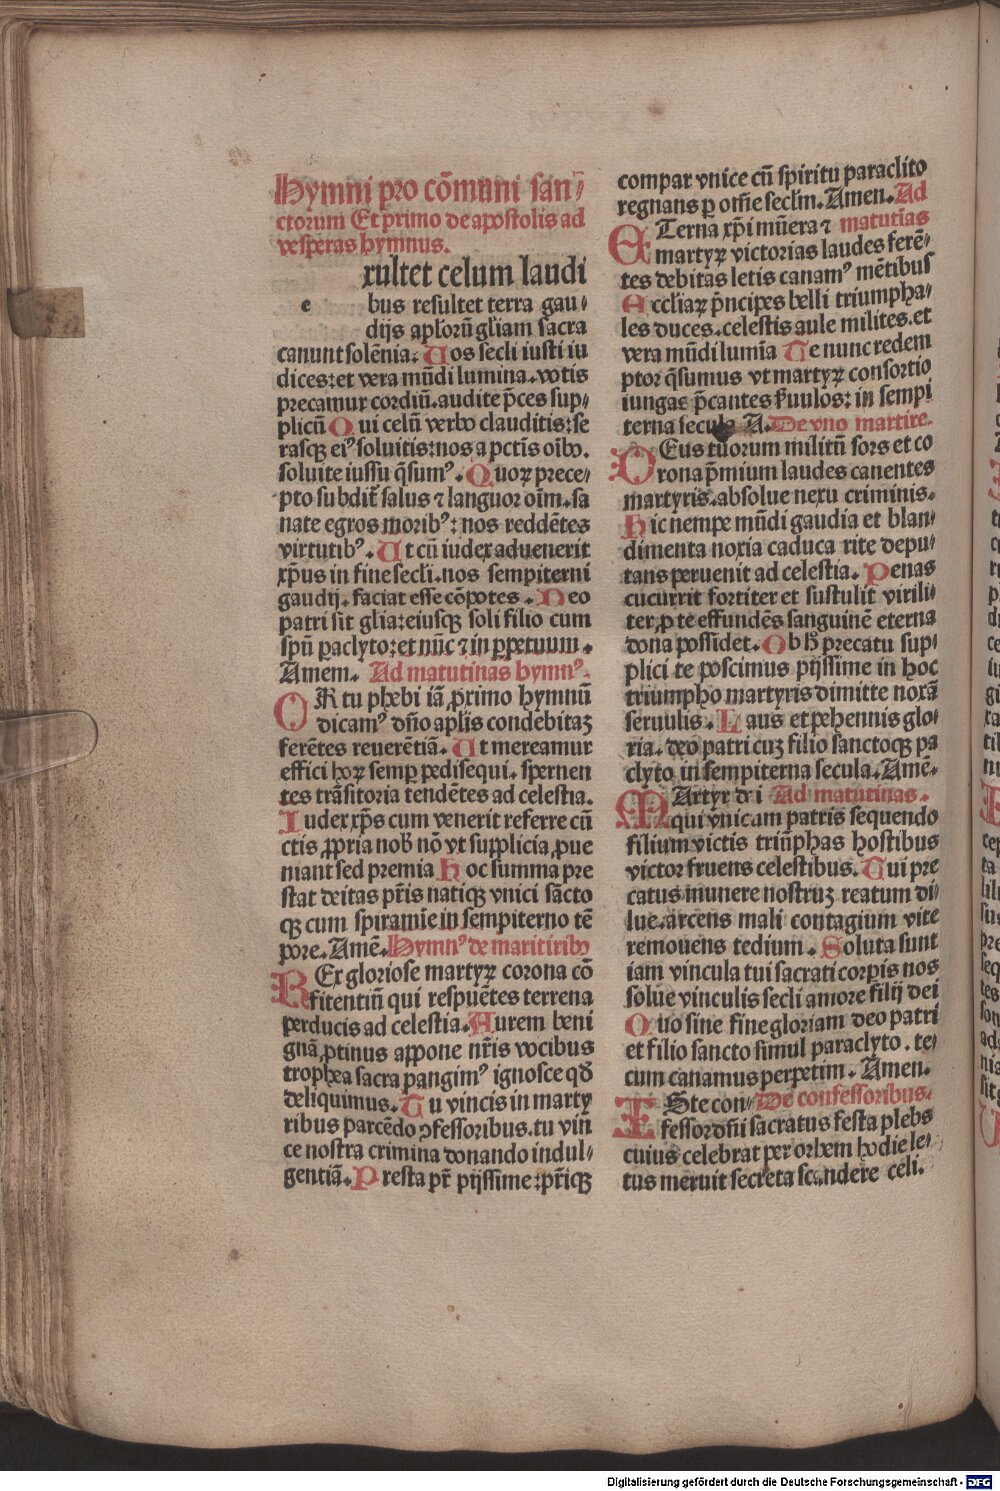 Hymni pro cōmuni san⸗
ctorum Et primo de apostolis ad
vesperas hymnus.
exultet celum laudi
bus resultet terra gau⸗
dijs apl'orū gl'iam sacra
canunt solēnia: Uos secli iusti iu
dices: et vera mūdi lumina. votis
precamur cordiū. audite p̄ces sup⸗
plicū Qui celū verbo clauditis: se
rasqꝫ eiꝰ soluitis: nos a pctīs oīb9.
soluite iussu q̄sumꝰ. Quoꝝ prece⸗
pto subdit̄ salus ⁊ languor oīm. sa
nate egros moribꝰ: nos reddētes
virtutibꝰ. Ut cū iudex aduenerit
xp̄us in fine secli. nos sempiterni
gaudij. faciat esse cōpotes. Deo
patri sit glīa: eiusqꝫ soli filio cum
spū ꝑaclyto: et nūc ⁊ in ꝑpetuum.
Amem. Ad matutinas hymnꝰ.
ORtu phebi iā ꝓximo hymnū
dicamꝰ dn̄o aplīs condebitaꝫ
ferētes reuerētiā. Ut mereamur
effici hoꝝ semꝑ pedisequi. spernen
tes trāsitoria tendētes ad celestia.
Iudex xp̄s cum venerit referre cū
ctis ꝓpria nob̄ nō vt supplicia ꝓue
niant sed premia Hoc summa pre
stat deitas pr̄is natiqꝫ vnici sācto
qꝫ cum spiramīe in sempiterno tē
pore. Amē. Hymnꝰ de maritirib9
REx gloriose martyꝝ corona cō
fitentiū qui respuētes terrena
perducis ad celestia. Aurem beni
gnā ꝓtinus appone nr̄is vocibus
trophea sacra pangimꝰ ignosce qd̄
deliquimus. Tu vincis in marty
ribus parcēdo ꝯfessoribus. tu vin
ce nostra crimina donando indul⸗
gentiā. Presta pr̄ pijssime: pr̄iqꝫ
compar vnice cū spiritu paraclito
regnans ꝑ om̄e secl'm. Amen. Ad
ETerna xp̄i mūera ⁊ matutīas
martyꝝ victorias laudes ferē⸗
tes debitas letis canamꝰ mētibus
Eccl'iaꝝ p̄ncipes belli triumpha⸗
les duces. celestis aule milites. et
vera mūdi lumīa Te nunc redem
ptor q̄sumus vt martyꝝ consortio
iungas p̄cantes ẜuulos: in sempi
terna secula A. De vno martire.
DEus tuorum militū sors et co
rona p̄mium laudes canentes
martyris. absolue nexu criminis.
Hic nempe mūdi gaudia et blan⸗
dimenta noxia caduca rite depu⸗
tans peruenit ad celestia. Penas
cucurrit fortiter et sustulit virili⸗
ter, ꝓ te effundēs sanguinē eterna
dona possidet. Ob h̄ precatu sup⸗
plici te poscimus pijssime in hoc
triumpho martyris dimitte noxā
seruulis. Laus et pehennis glo⸗
ria. deo patri cuꝫ filio sanctoqꝫ pa
clyto in sempiterna secula. Amē.
MArtyr de i Ad matutinas.
qui vnicum patris sequendo
filium victis triūphas hostibus
victor fruens celestibus. Tui pre
catus munere nostruꝫ reatum di⸗
lue. arcens mali contagium vite
remouens tedium. Soluta sunt
iam vincula tui sacrati corpis nos
solue vinculis secli amore filij dei
Quo sine fine gloriam deo patri
et filio sancto simul paraclyto. te⸗
cum canamus perpetim. Amen.
ISte con⸗ De confessoribus.
fessor dn̄i sacratus festa plebs
cuius celebrat per orbem hodie le⸗
tus meruit secreta scandere celi.
Digitalisierung gefördert durch die Deutsche Forschungsgemeinschaft - DFG